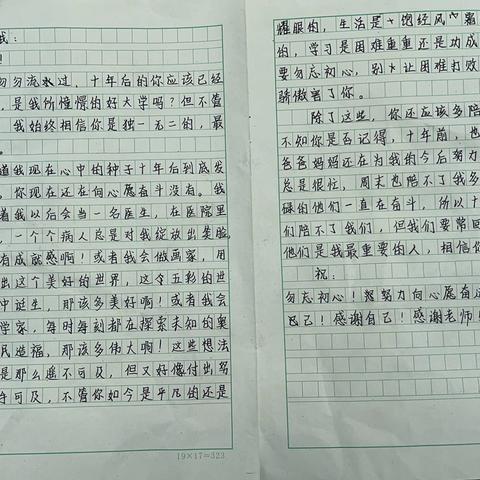 我：
！
匆匆流水过，十年后的你应该已经
，是我所憧憬的好大学吗？但不管
我始终相信你是独一无二的，最
。
道我现在心中的种子十年后到底发
。你现在还在向心愿奋斗没有。我
着我以后会当一名医生，在医院里
，一个个病人总是对我绽放出笑脸，
有成就感啊！或者我会做画家，用
出这个美好的世界，这令五彩的世
中诞生，那该多美好啊！或者我会
学家，每时每刻都在探索未知的奥
民造福，那该多伟大啊！这些想法
是那么遥不可及，但又好像付出努
许可及，不管你如今是平凡的还是
19×17=323
耀眼的，生活是饱经风霜
的，学习是困难重重还是功成
要勿忘初心，别让困难打败
骄傲害了你。
除了这些，你还应该多陪
不知你是否记得，十年前，也
爸爸妈妈还在为我的今后努力
总是很忙，周末也陪不了我多
碌的他们一直在奋斗，所以十
们陪不了我们，但我们要常回
他们是我最重要的人，相信你
祝：
勿忘初心！努努力向心愿奋
自己！感谢自己！感谢老师！